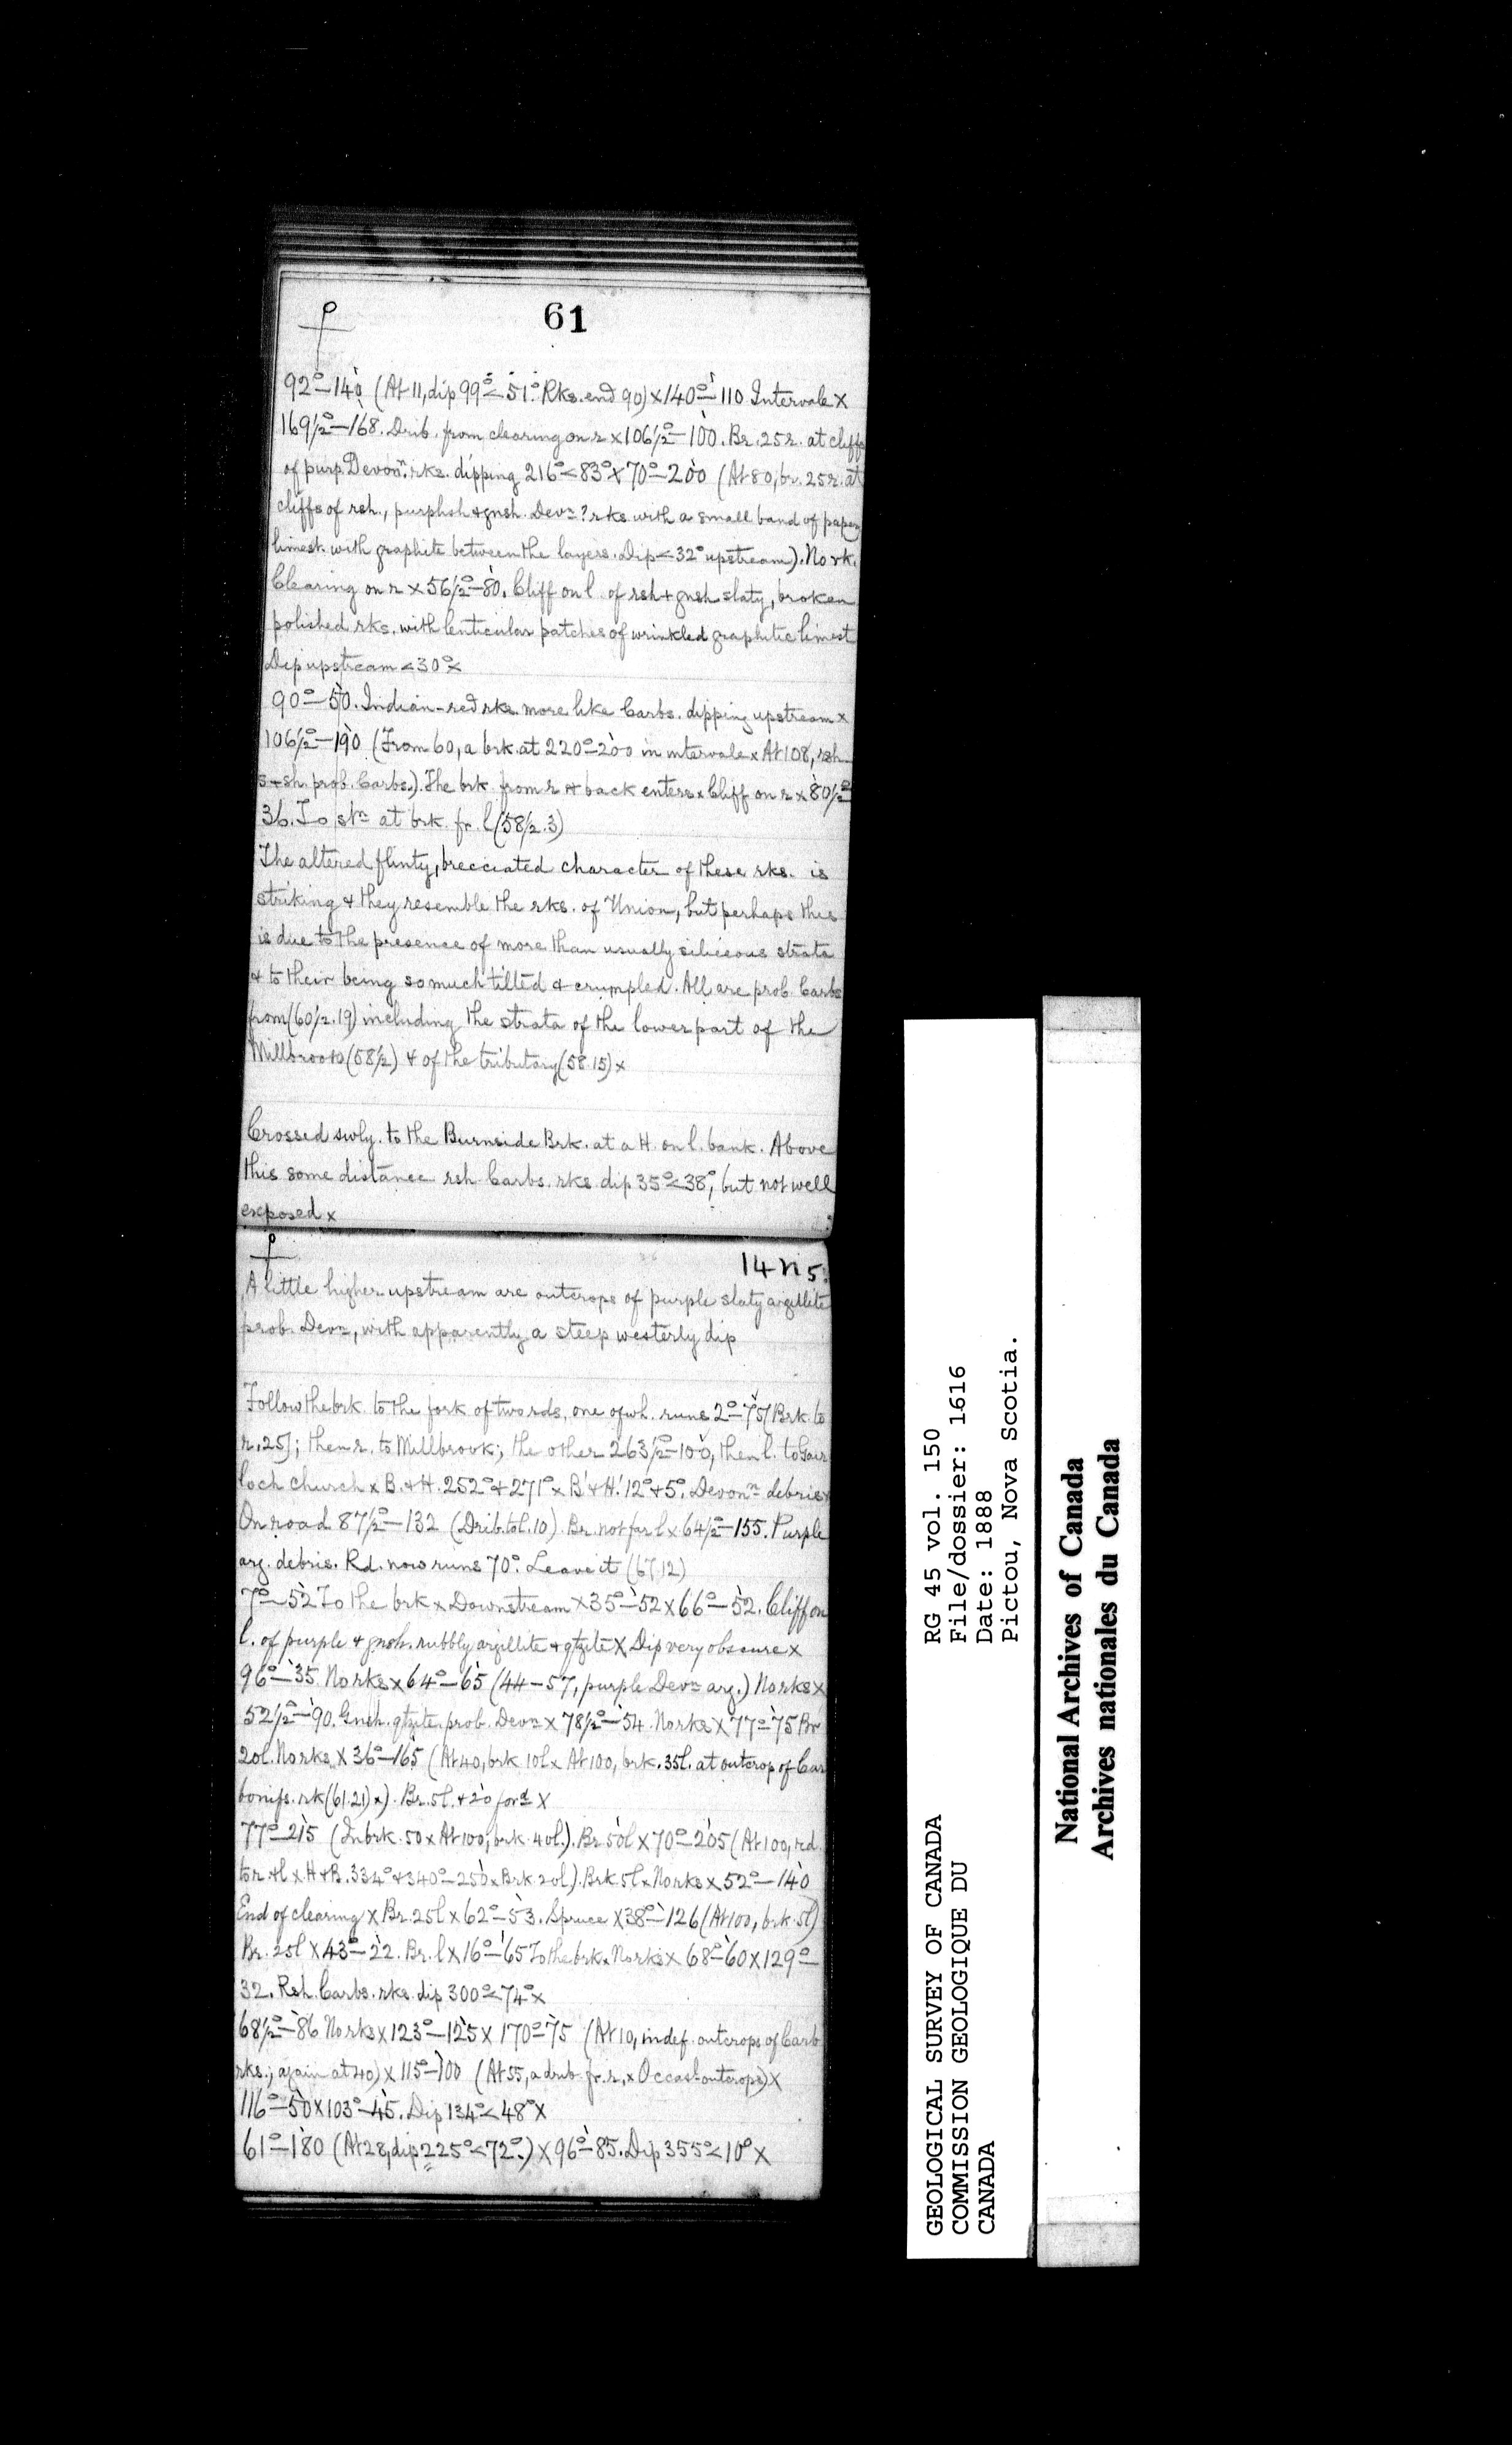 61
92°–140 (At 11, dip 99°<51°. Rks. end 90) x 140°–110 Intervale x
169½°–168. Drib. from clearing on r x 106½°–100. Br. 25 r. at cliffs
of purp. Devonn. rks. dipping 216°<83° x 70°–200 (At 80, br. 25 r. at
cliffs of rsh., purphsh & gnsh. Devn? rks with a small band of papery
limest. with graphite between the layers. Dip <32° upstream). No rk.
Clearing on r x 56½°–80. Cliff on l. of rsh + gnsh slaty, broken
polished rks. with lenticular patches of wrinkled graphitic limest
Dip upstream <30° x
90°–50. Indian-red rks. more like Carbs. dipping upstream x
106½°–190 (From 60, a brk. at 220°–200 in intervale x At 108, rsh
s + sh. prob. Carbs.). The brk from r & back enters x Cliff on r x 80½°
36. To stn at brk. fr. l (58½.3)
The altered flinty, brecciated character of these rks. is
striking & they resemble the rks. of Union, but perhaps this
is due to the presence of more than usually siliceous strata
& to their being so much tilted & crumpled. All are prob. Carbs
from (60½.19) including the strata of the lower part of the
Millbrook (58½) & of the tributary (58.15) x
Crossed swly. to the Burnside Brk. at a H. on l. bank. Above
this some distance rsh Carbs. rks dip 35°<38°, but not well
exposed x
14 N 5.
A little higher upstream are outcrops of purple slaty argillite
prob. Devn, with apparently a steep westerly dip
Follow the brk. to the fork of two rds, one of wh. runs 2°–75 [Brk. to
r. 25]; then r. to Millbrook; the other 263½°–100, then l. to Gair
loch church x B. & H. 252° & 271° x B' & H.' 12° & 5°. Devonn debris x
On road 87½°–132 (Drib. to l. 10). Br. not far l x 64½°–155. Purple
arg. debris. Rd. now runs 70°. Leave it (67.12)
7°–52 To the brk x Downstream x 35°–52 x 66°–52. Cliff on
l. of purple & gnsh. rubbly argillite & qtzite x Dip very obscure x
96°–35 No rks x 64°–65 (44–57, purple Devn arg.) No rks x
52½°–90. Gnsh. qtzite prob. Devn x 78½°–54. No rks x 77°–75 Br
20 l. No rks x 36°–165 (At 40, brk 10 l x At 100, brk. 35 l. at outcrop of Car
bonifs. rk (61.21) x). Br. 5 l. & 20 ford x
77°–215 (In brk. 50 x At 100, brk. 40 l.). Br 50 l x 70°–205 (At 100, rd.
to r. & l x H & B. 334° & 340°–250 x Brk 20 l). Brk. 5 l x No rks x 52°–140
End of clearing x Br. 25 l x 62°–53. Spruce x 38°–126 (At 100, brk. 5 l)
Br. 25 l x 43°–22. Br. l x 16°–65 To the brk x No rks x 68°–60 x 129°–
32. Rsh Carbs. rks. dip 300°<74° x
68½°–86 No rks x 123°–125 x 170°–75 (At 10, indef. outcrops of Carb
rks.; again at 40) x 115°–100 (At 55, a drib fr. r. x Occasl outcrops) x
116°–50 x 103°–45. Dip 134°<48° x
61°–180 (At 28, dip 225°<72°.) x 96°–85. Dip 355°<10° x
GEOLOGICAL SURVEY OF CANADA
COMMISSION GEOLOGIQUE DU
CANADA
RG 45 vol. 150
File/dossier: 1616
Date: 1888
Pictou, Nova Scotia.
National Archives of Canada
Archives nationales du Canada